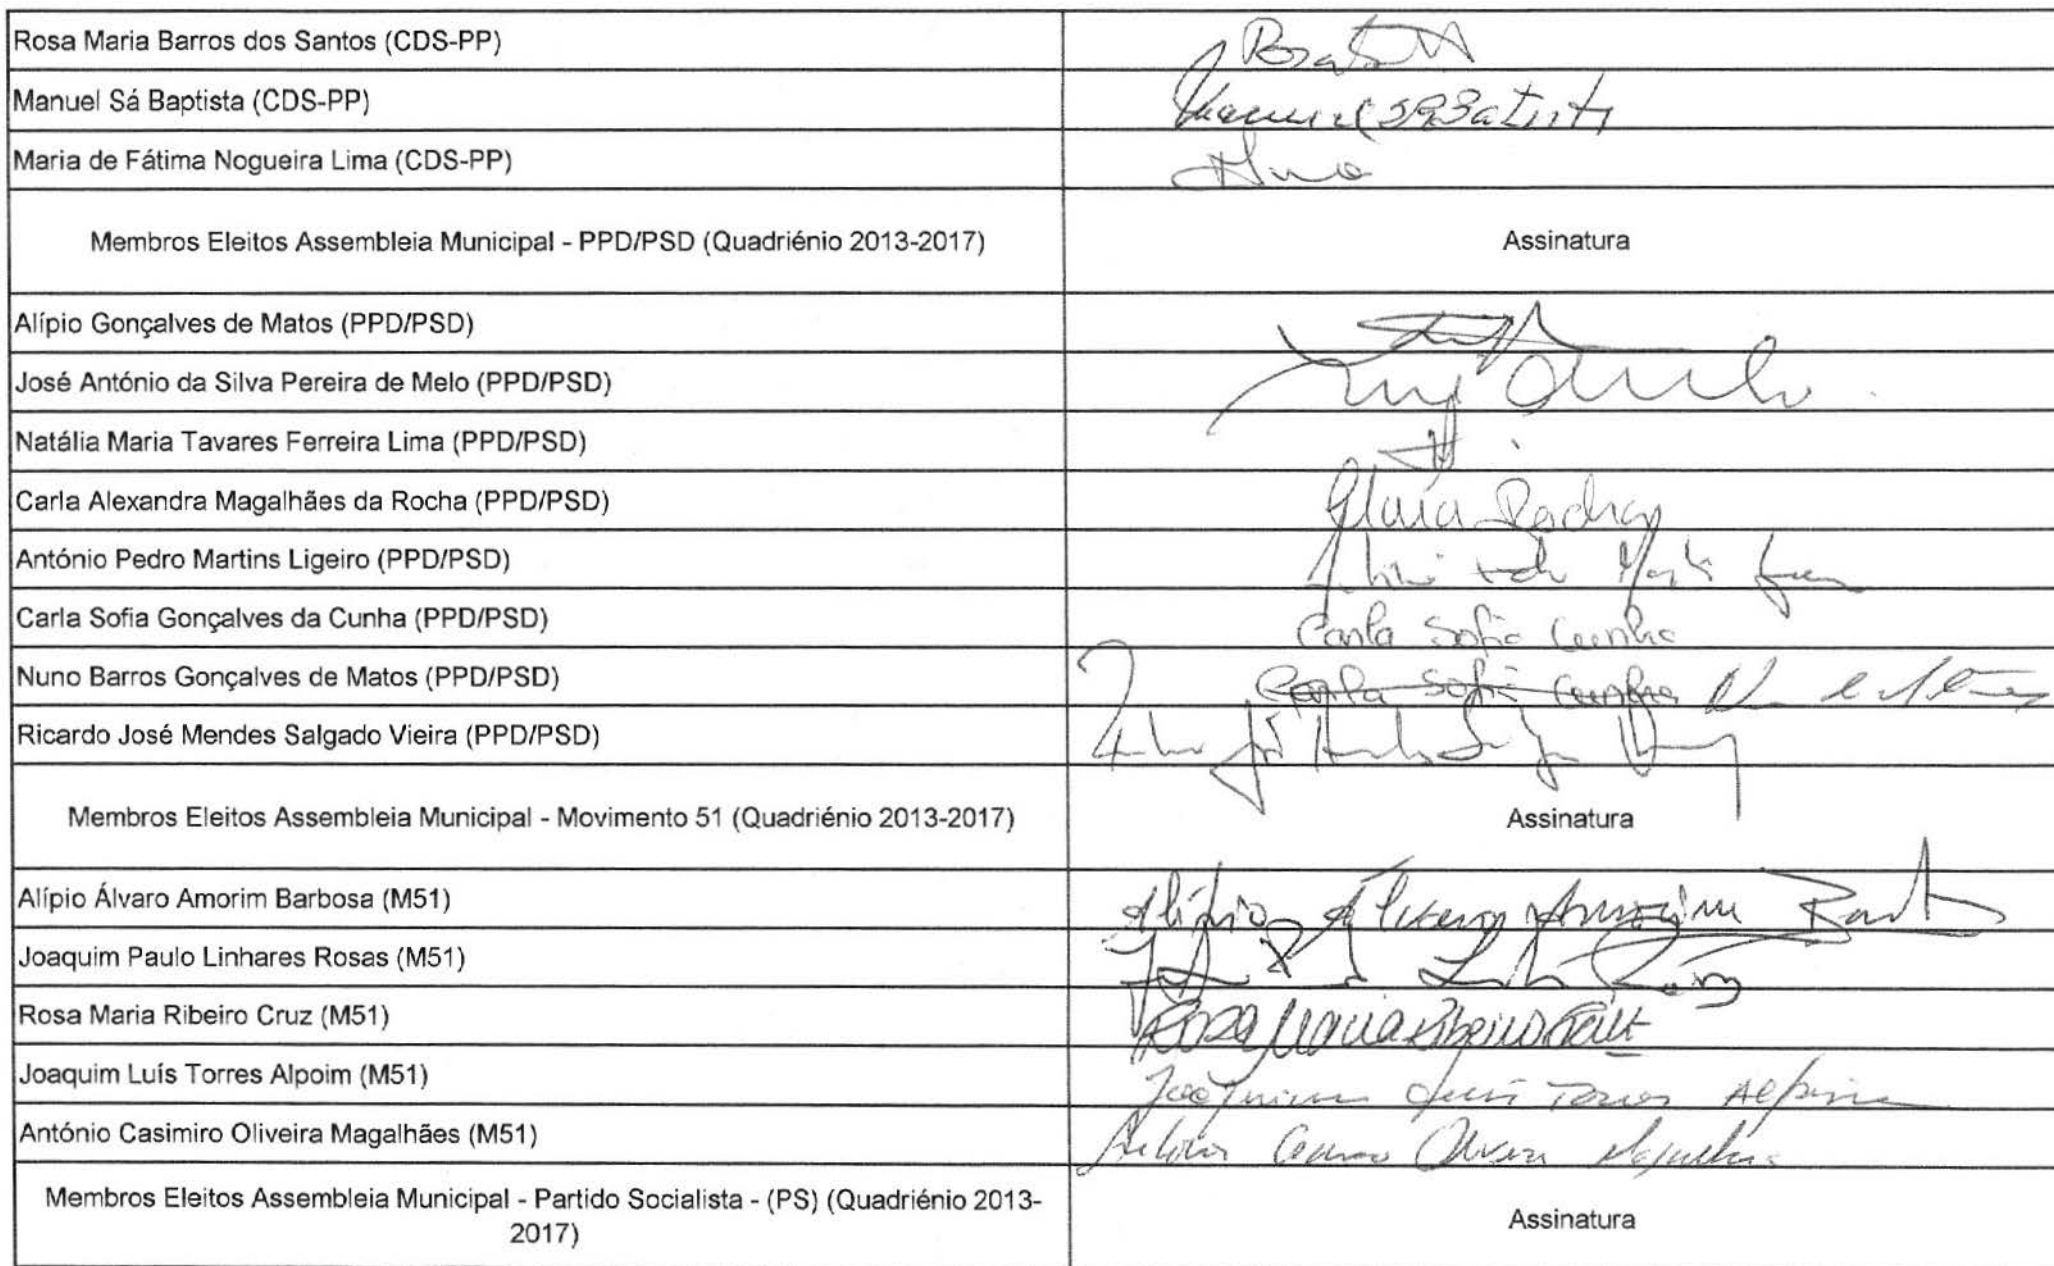 Rosa Maria Barros dos Santos (CDS-PP)
Manuel Sá Baptista (CDS-PP)
Maria de Fátima Nogueira Lima (CDS-PP)
Membros Eleitos Assembleia Municipal - PPD/PSD (Quadriénio 2013-2017) Assinatura
Alípio Gonçalves de Matos (PPD/PSD)
José António da Silva Pereira de Melo (PPD/PSD)
Natália Maria Tavares Ferreira Lima (PPD/PSD)
Carla Alexandra Magalhães da Rocha (PPD/PSD)
António Pedro Martins Ligeiro (PPD/PSD)
Carla Sofia Gonçalves da Cunha (PPD/PSD) Carla Sofia Cunha
Nuno Barros Gonçalves de Matos (PPD/PSD) Carla Sofia Cunha
Ricardo José Mendes Salgado Vieira (PPD/PSD)
Membros Eleitos Assembleia Municipal - Movimento 51 (Quadriénio 2013-2017) Assinatura
Alípio Álvaro Amorim Barbosa (M51) Alípio Álvaro Amorim
Joaquim Paulo Linhares Rosas (M51)
Rosa Maria Ribeiro Cruz (M51) Rosa Maria Ribeiro Cruz
Joaquim Luís Torres Alpoim (M51) Joaquim Luís Torres Alpoim
António Casimiro Oliveira Magalhães (M51)
Membros Eleitos Assembleia Municipal - Partido Socialista - (PS) (Quadriénio 2013-
2017) Assinatura